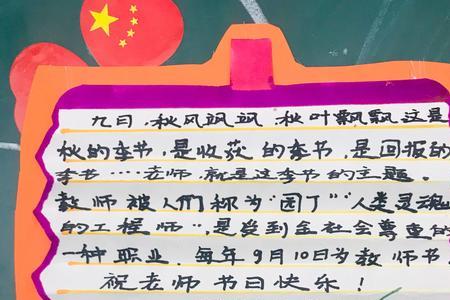 九月,秋风飒飒,秋叶飘飘,这是
秋的季节,是收获的季节,是回报的
季节……老师,就是这季节的主题。
教师被人们称为"园丁""人类灵魂
的工程师",是受到全社会尊重的
一种职业,每年9月10日为教师节。
祝老师节日快乐!